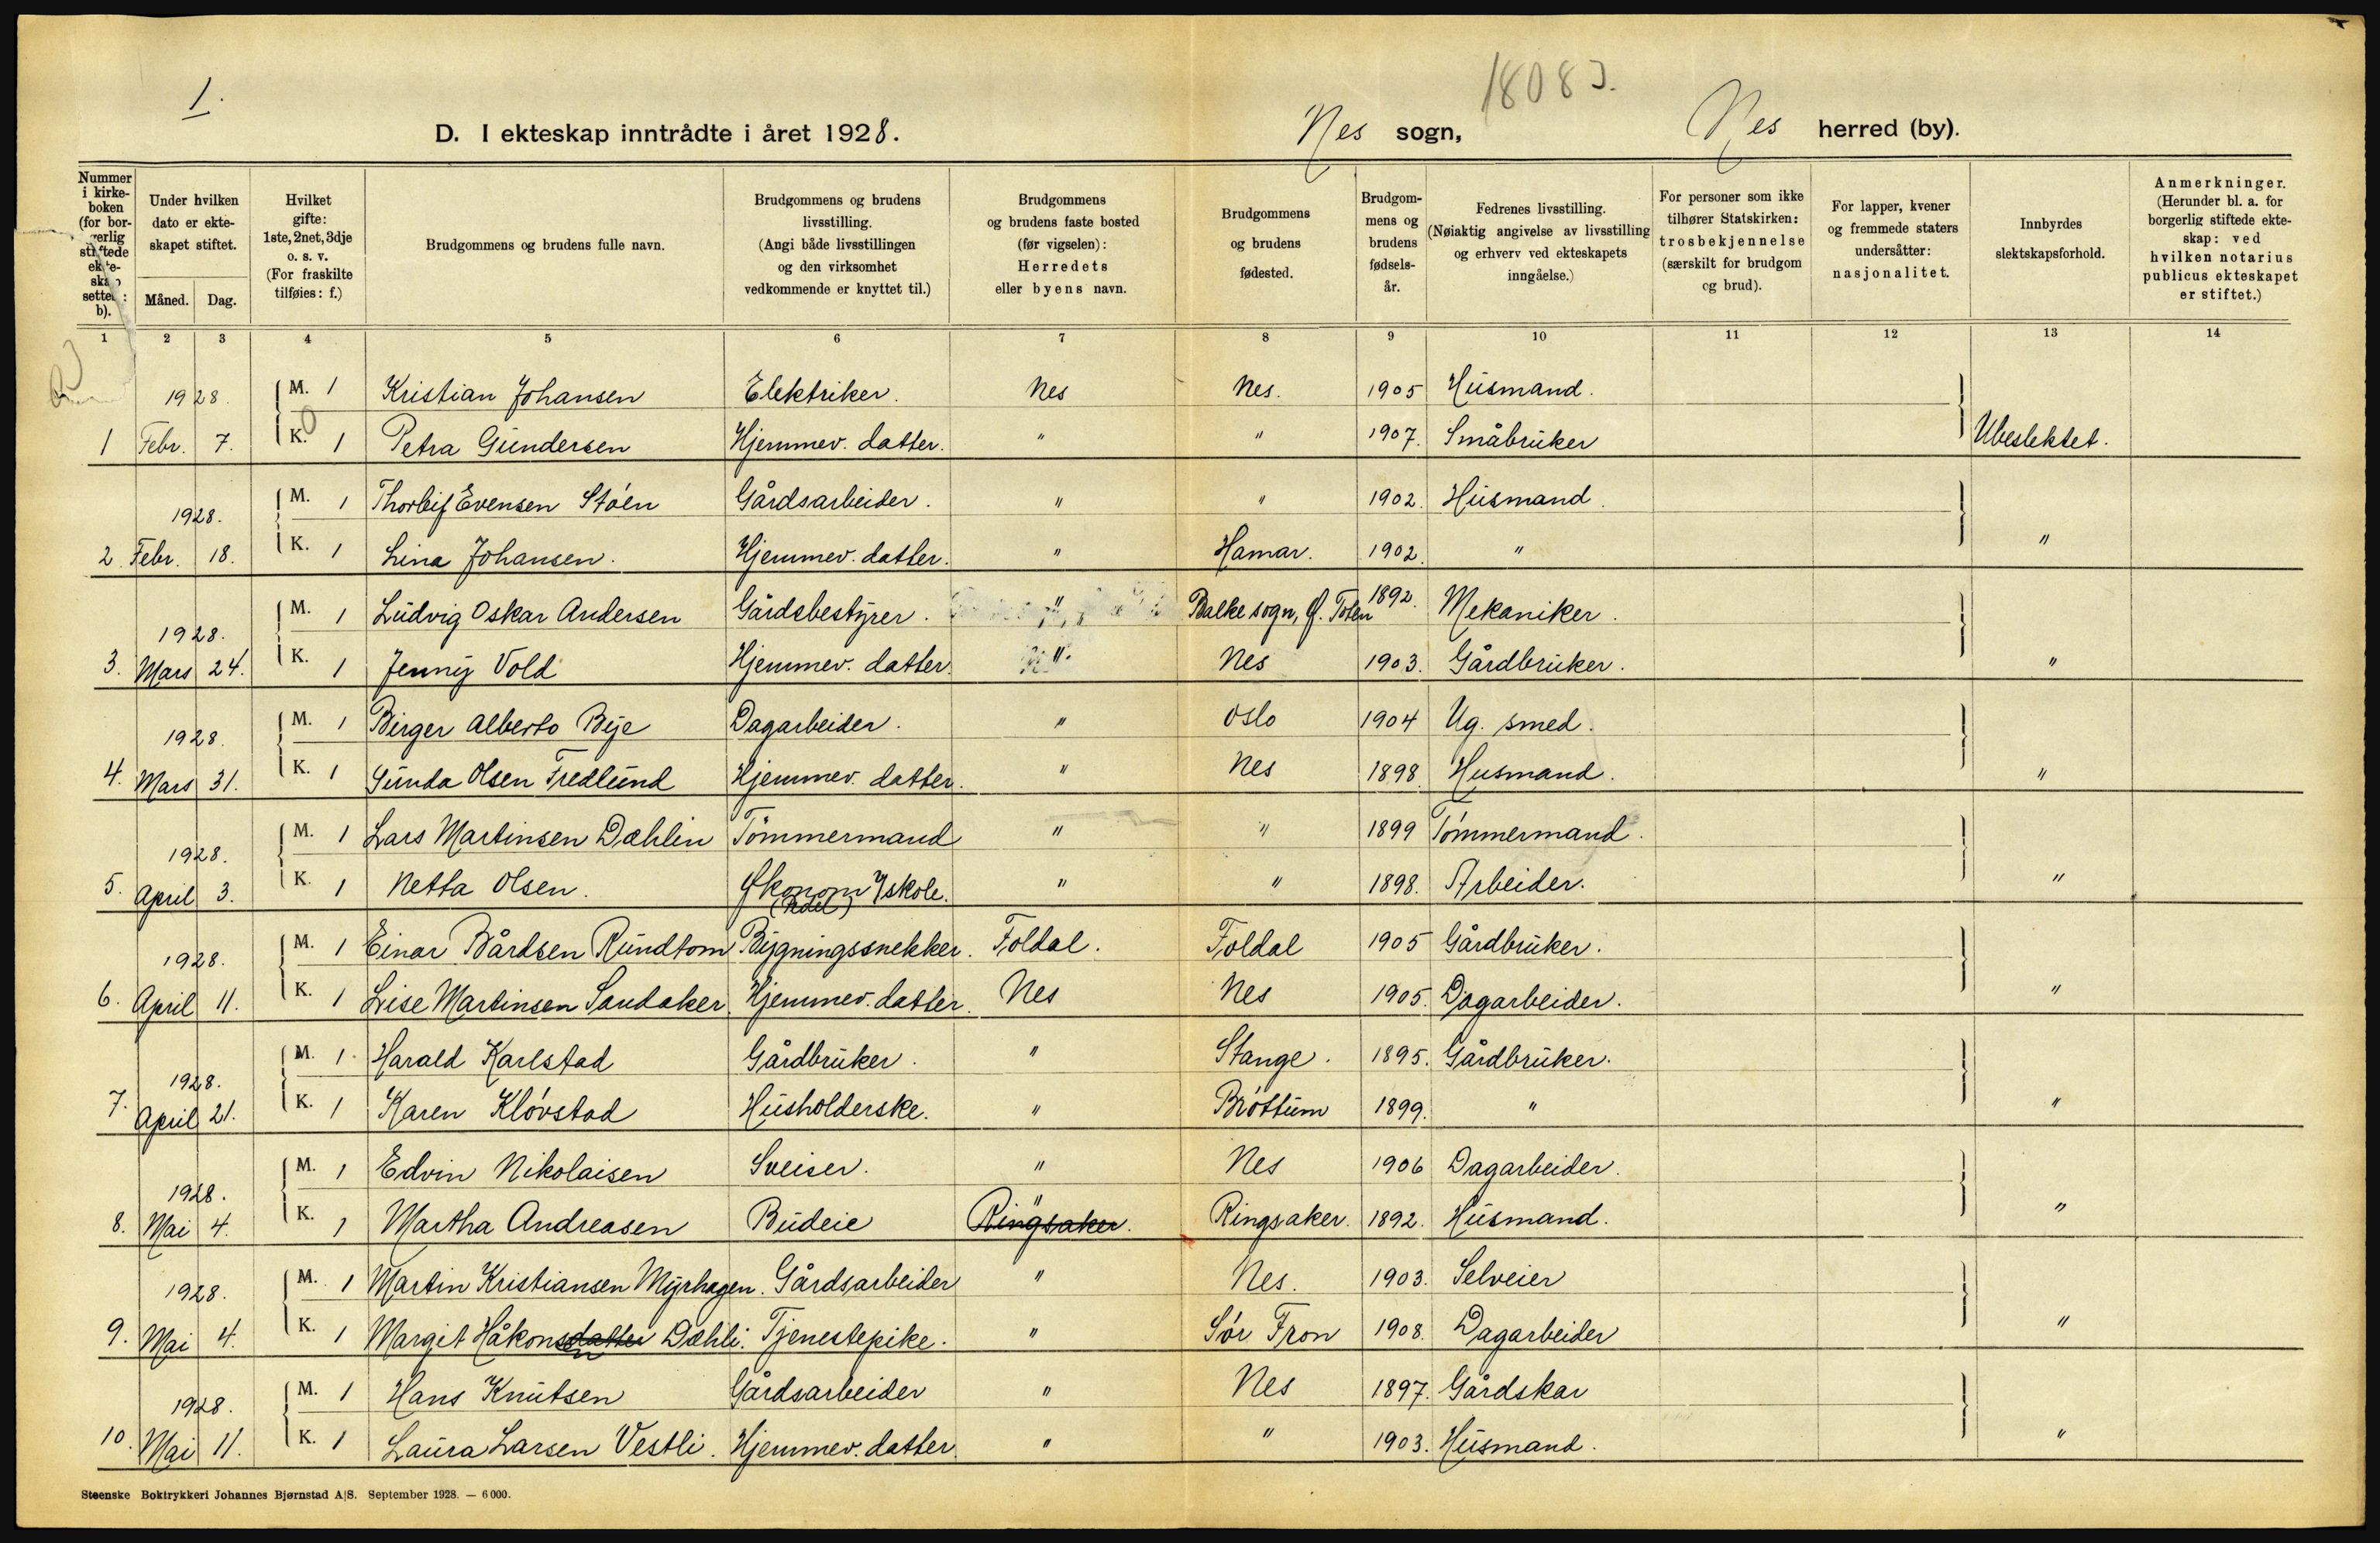 1.
18083.
D. I ekteskap inntrådte i året 1928. Nes sogn, Nes herred (by).
Nummer i kirkeboken (for borgerlig stiftede ekteskap settes: b).
Under hvilken dato er ekteskapet stiftet.
Måned. Dag.
Hvilket gifte: 1ste, 2net, 3dje o. s. v. (For fraskilte tilføies: f.)
Brudgommens og brudens fulle navn.
Brudgommens og brudens livsstilling. (Angi både livsstillingen og den virksomhet vedkommende er knyttet til.)
Brudgommens og brudens faste bosted (før vigselen): Herredets eller byens navn.
Brudgommens og brudens fødested.
Brudgommens og brudens fødselsår.
Fedrenes livsstilling. (Nøiaktig angivelse av livsstilling og erhverv ved ekteskapets inngåelse.)
For personer som ikke tilhører Statskirken: trosbekjennelse (særskilt for brudgom og brud).
For lapper, kvener og fremmede staters undersåtter: nasjonalitet.
Innbyrdes slektskapsforhold.
Anmerkninger. (Herunder bl. a. for borgerlig stiftede ekteskap: ved hvilken notarius publicus ekteskapet er stiftet.)
1 2 3 4 5 6 7 8 9 10 11 12 13 14
1928. M. 1 Kristian Johansen Elektriker. Nes Nes. 1905 Husmand.
1 Febr. 7. K. 1 Petra Gundersen Hjemmev. datter. " " 1907. Småbruker Ubeslektet.
1928. M. 1 Thorleif Evensen Støen Gårdsarbeider. " " 1902. Husmand.
2 Febr. 18. K. 1 Lina Johansen. Hjemmev. datter. " Hamar. 1902. " "
1928. M. 1 Ludvig Oskar Andersen Gårdsbestyrer. " Balke sogn, Ø. Toten 1892. Mekaniker.
3. Mars 24. K. 1 Jenny Vold Hjemmev. datter. " Nes 1903. Gårdbruker. "
1928. M. 1 Birger Alberto Bye Dagarbeider. " Oslo 1904 Ug. smed.
4. Mars 31. K. 1 Gunda Olsen Fredlund Hjemmev. datter. " Nes 1898. Husmand. "
1928. M. 1 Lars Martinsen Dæhlin Tømmermand " " 1899 Tømmermand.
5. April 3. K. 1 Netta Olsen. Økonom v/skole. " " 1898. Arbeider. "
1928. M. 1 Einar Bårdsen Rundtom Bygningssnekker. Foldal. Foldal 1905 Gårdbruker.
6. April 11. K. 1 Lise Martinsen Sandaker. Hjemmev. datter. Nes Nes 1905. Dagarbeider. "
1928. M. 1. Harald Karlstad Gårdbruker. " Stange. 1895. Gårdbruker.
7. April 21. K. 1 Karen Kløvstad Husholderske. " Brøttum 1899. " "
1928. M. 1 Edvin Nikolaisen Sveiser. " Nes 1906 Dagarbeider.
8. Mai 4. K. 1 Martha Andreasen Budeie " Ringsaker. Ringsaker. 1892. Husmand. "
1928. M. 1 Martin Kristiansen Myrhagen. Gårdsarbeider " Nes. 1903. Selveier
9. Mai 4. K. 1 Margit Håkonsdatter en Dæhli. Tjenestepike. " Sør Fron 1908. Dagarbeider "
1928. M. 1 Hans Knutsen Gårdsarbeider " Nes 1897. Gårdskar
10. Mai 11. K. 1 Laura Larsen Vestli. Hjemmev. datter. " " 1903. Husmand. "
Steenske Boktrykkeri Johannes Bjørnstad A/S. September 1928. — 6000.